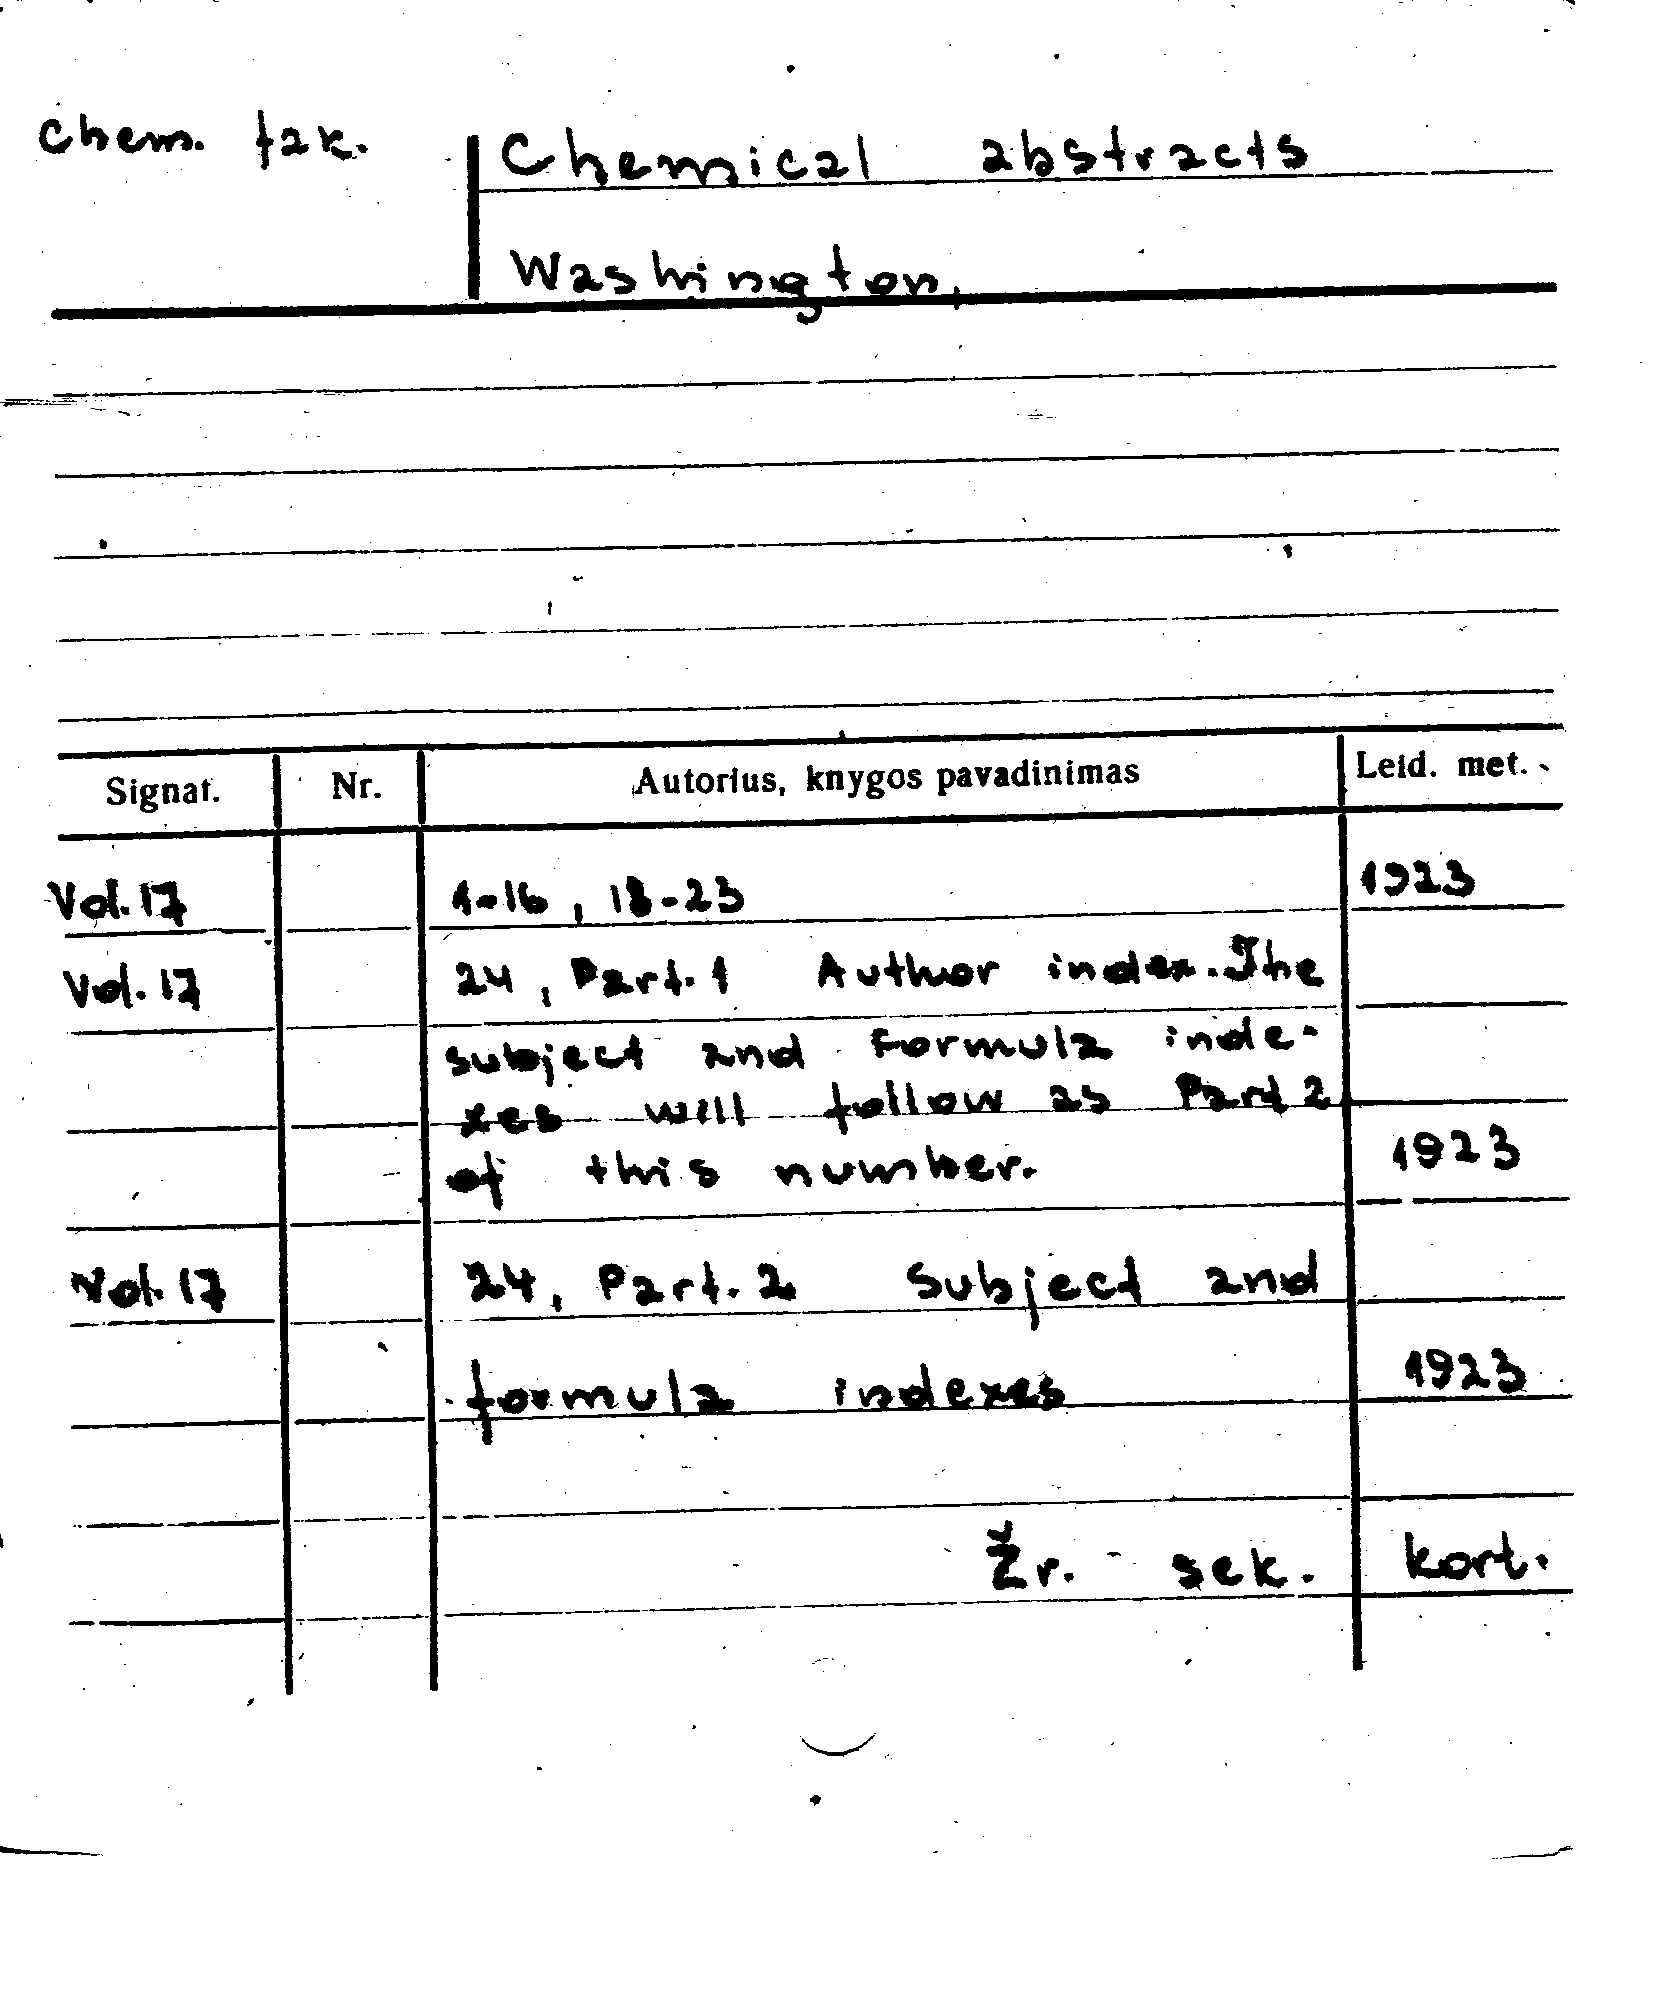 Chem. fak.
Chemical abstracts
Washington,
Signat. Nr. Autorius, knygos pavadinimas Leid. met.
Vol. 17 1-16, 18-23 1923
Vol. 17 24, Part. 1 Author index. The
subject and formula inde-
xes will follow as Part 2
of this number. 1923
Vol. 17 24, Part. 2 Subject and
formula indexes 1923
Žr. sek. kort.